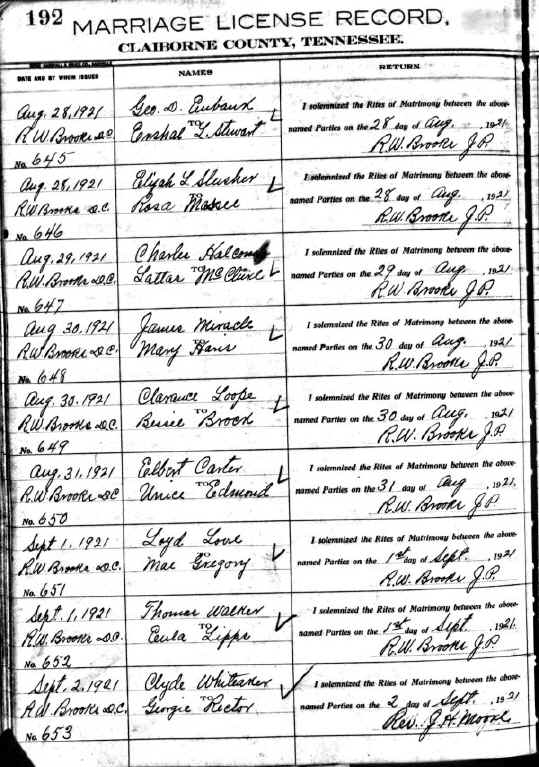 192 MARRIAGE LICENSE RECORD,
CLAIBORNE COUNTY, TENNESSEE.
DATE AND BY WHOM ISSUED NAMES RETURN
Aug. 28, 1921 Geo. D. Eubank I solemnized the Rites of Matrimony between the above-
R.W. Brooks D.C. TO Stewart named Parties on the 28 day of Aug. , 1921
No. 645 R.W. Brooks J.P.
Aug. 28, 1921 Elijah L Slusher I solemnized the Rites of Matrimony between the above-
R.W. Brooks D.C. Rosa TO named Parties on the 28 day of Aug. , 1921
No. 646 R.W. Brooks J.P.
Aug. 29, 1921 Charles Halcomb I solemnized the Rites of Matrimony between the above-
R.W. Brooks D.C. Lattas TO McCline named Parties on the 29 day of Aug. , 1921
No. 647 R.W. Brooks J.P.
Aug 30, 1921 James Miracle I solemnized the Rites of Matrimony between the above-
R.W. Brooks D.C. Mary TO named Parties on the 30 day of Aug. , 1921
No. 648 R.W. Brooks J.P.
Aug. 30, 1921 Clarance Loope I solemnized the Rites of Matrimony between the above-
R.W. Brooks D.C. TO Brock named Parties on the 30 day of Aug. , 1921
No. 649 R.W. Brooks J.P.
Aug. 31, 1921 Elbert Carter I solemnized the Rites of Matrimony between the above-
R.W. Brooks D.C Unice TO Edmond named Parties on the 31 day of Aug , 1921
No. 650 R.W. Brooks J.P.
Sept 1, 1921 Loyd Love I solemnized the Rites of Matrimony between the above-
R.W. Brooks D.C. Mae TO Gregory named Parties on the 1st day of Sept. , 1921
No. 651 R.W. Brooks J.P.
Sept. 1, 1921 Thomas Walker I solemnized the Rites of Matrimony between the above-
R.W. Brooks D.C. Eula TO Lipps named Parties on the 1st day of Sept. , 1921
No. 652 R.W. Brooks J.P.
Sept. 2, 1921 Clyde Whiteaker I solemnized the Rites of Matrimony between the above-
R.W. Brooks D.C. Georgie TO Rector named Parties on the 2 day of Sept. , 1921
No. 653 Rev. J.H. Moore